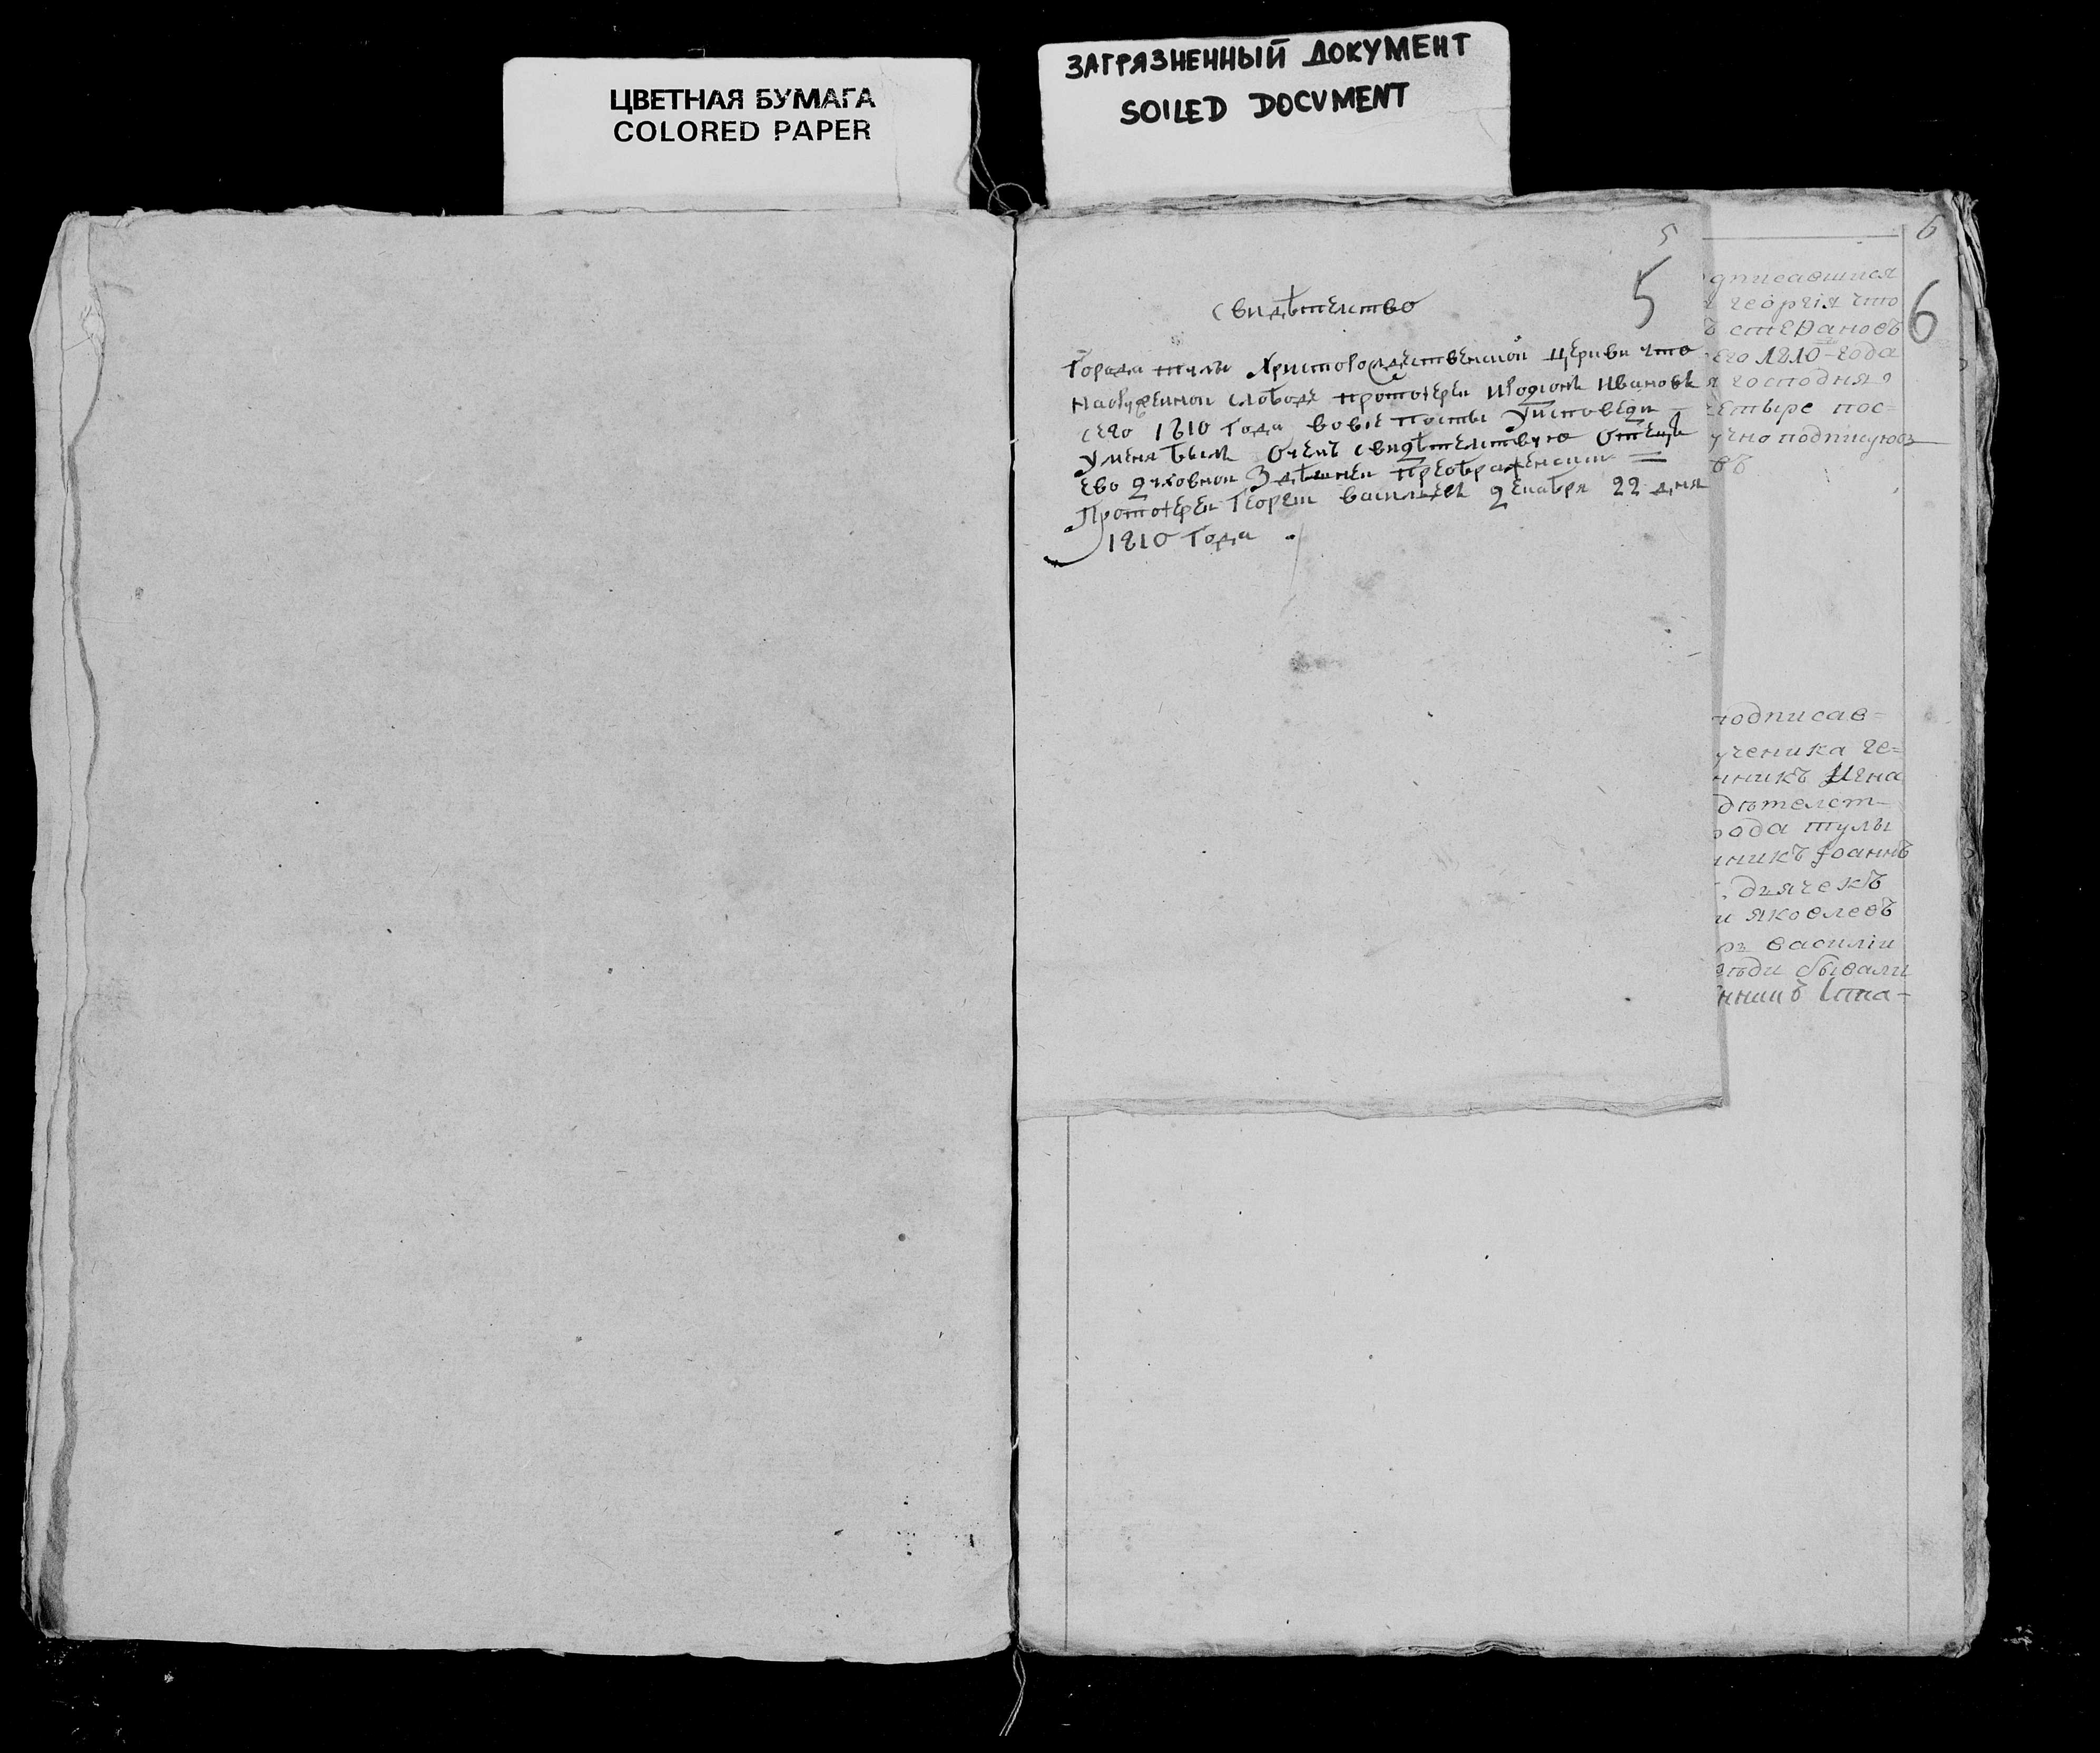 ЦВЕТНАЯ БУМАГА
COLORED PAPER
ЗАГРЯЗНЕННЫЙ ДОКУМЕНТ
SOILED DOCUMENT
5
5
свидѣтелство
Города тулы Христорождественской церкви что
наоружейной слободе протоиерей Иродионъ Ивановъ
сего 1810 Года вовсе посты Уисповеди
Уменя былъ Очемъ свидѣтелствую Отецъ
ево духовной Здѣшней преображенскии =
Протоиерей Георги василиевъ декабря 22 дня
1810 Года .
6
6
дписавшися
георгія что
стефановъ
его 1810-года
господня
четыре пос=
подписуюсь
въ
подписав=
ученика ге=
нникъ Игна
дѣтелст-
рода тулы
нникъ Іоаннъ
дьячекъ
и яковлевъ
василіи
бывали